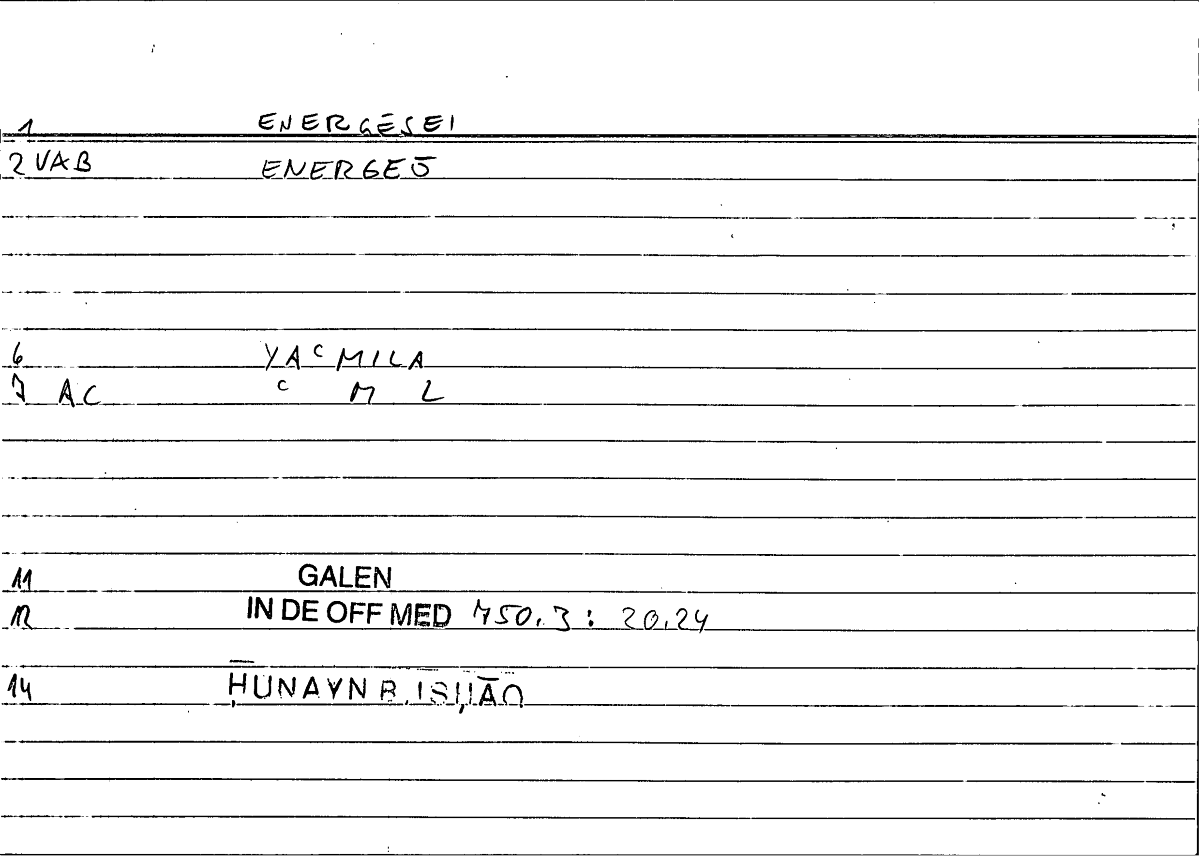 1 ENERGĒSEI
2 VAB ENERGEŌ
6 YAᶜMILA
7 AC ᶜ M L
11 GALEN
12 IN DE OFF MED 750.3 : 20.24
14 ḤUNAYN B. ISḤĀQ